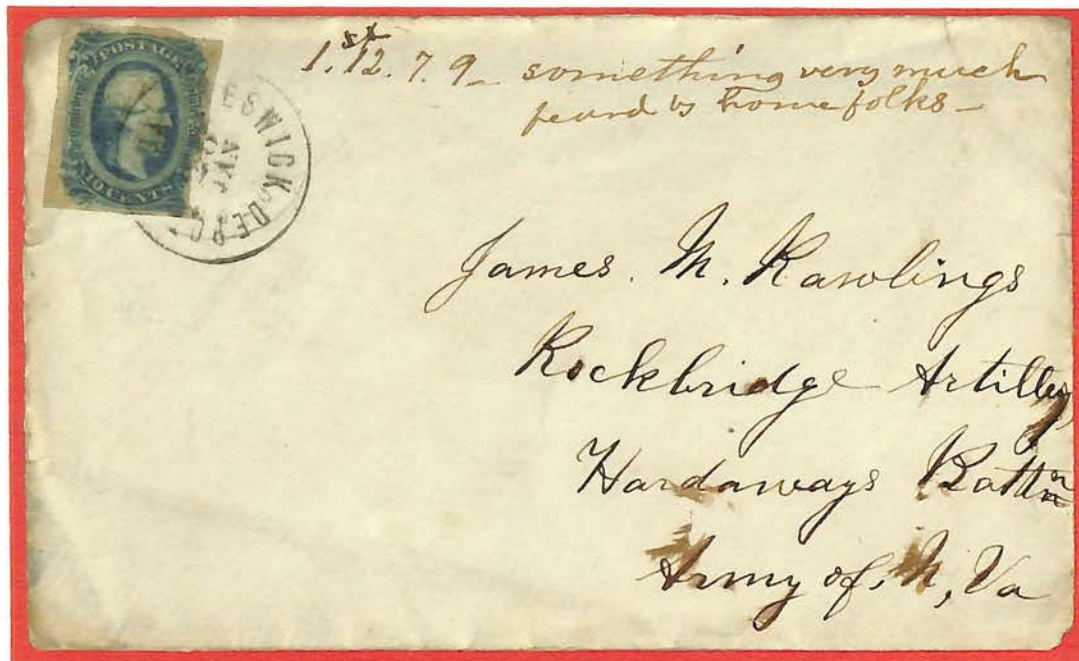 POSTAGE
TEN CENTS
ESWICK DEPO
1.st12.7.9_ something very much
feard by home folks _
James. M. Rawlings
Rockbridge Artillery
Hardaways Battn
Army of. N, Va